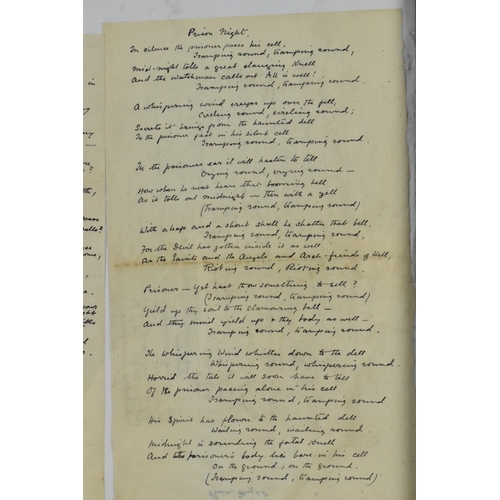 Prison Night.
In silence the prisoner paces his cell,
Tramping round, tramping round,
Mid-night tolls a great clanging knell
And the watchman calls out All is well!
Tramping round, tramping round
A whispering wind creeps up over the fell,
Circling round, circling round;
Secrets it brings from the haunted dell
To the prisoner fast in his silent cell
Tramping round, tramping round.
In the prisoners ear it will hasten to tell
Crying round, crying round —
How when he next hears that booming bell
As it tolls out midnight — then with a yell
(Tramping round, tramping round)
With a leap and a shout shall he shatter that bell,
Tramping round, tramping round,
For the Devil has gotten inside it as well
As the Saints and the Angels and Arch-fiends of Hell,
Rioting round, Rioting round.
Prisoner — Yet hast thou something to sell?
(Tramping round, tramping round)
Yield up thy soul to the clamouring bell —
And thou must yield up thy body as well —
Tramping round, tramping round.
The whispering Wind whistles down to the dell
Whispering round, whispering round.
Horrid the tale it will soon have to tell
Of the prisoner pacing alone in his cell
Tramping round, tramping round
His Spirit has flown to the haunted dell
Wailing round, wailing round.
Midnight is sounding the fatal knell
And the prisoner's body lies bare in his cell
On the ground, on the ground.
(Tramping round, tramping round)